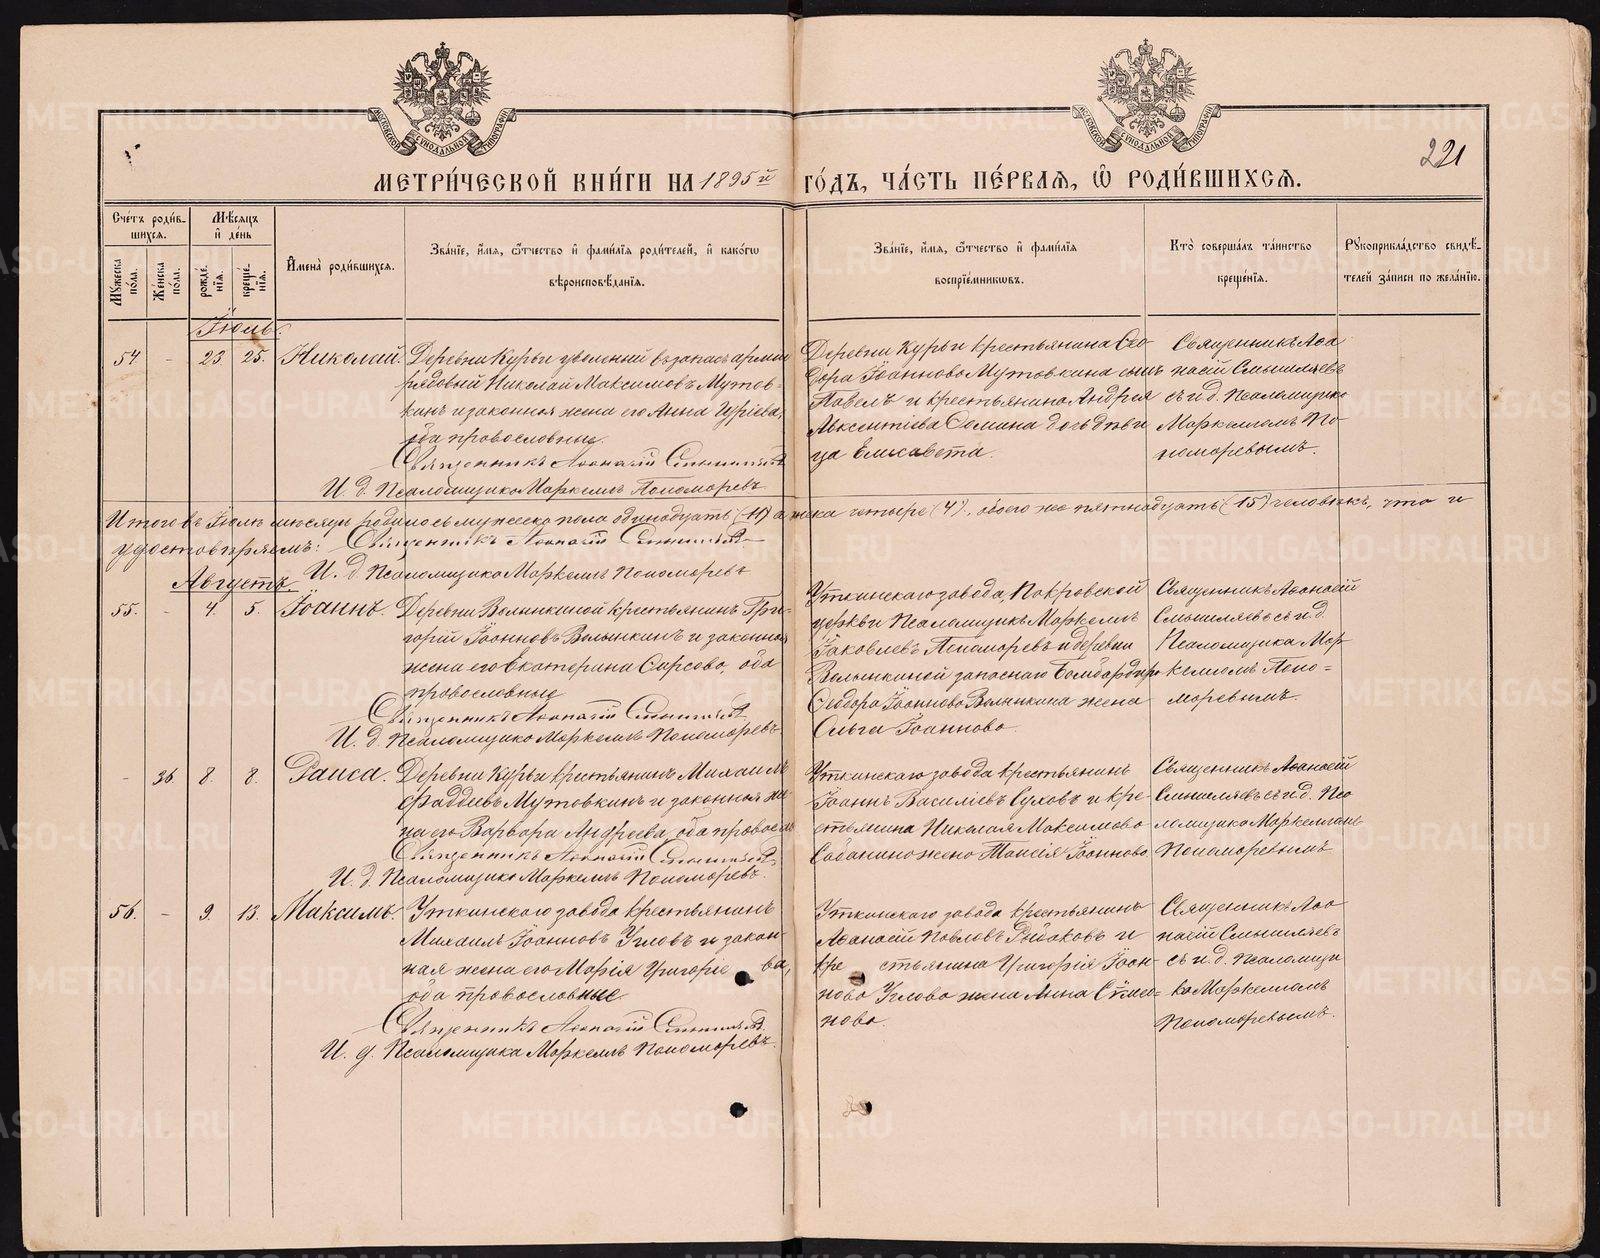 221
МЕТРИ́ЧЕСКОЙ КНИ́ГИ НА 1895й ГО́ДЪ, ЧА́СТЬ ПЕ́РВАЯ, Ѡ РОДИ́ВШИХСЯ.
Сче́тъ роди́в-
шихся.
Мѣ́сяцъ
и҆ де́нь
Му́жеска по́ла.
Же́нска по́ла.
рожде́нїя.
креще́нїя.
И҆мена̀ роди́вшихся.
Зва́нїе, и҆́мя, ѻ҆́тчество и҆ фами́лїя роди́телей, и҆ како́гѡ
вѣроисповѣ́данїя.
Зва́нїе, и҆́мя, ѻ҆́тчество и҆ фами́лїя
воспрїе́мникѡвъ.
Кто̀ соверша́лъ та́инство
креще́нїя.
Рꙋкоприкла́дство свидѣ́-
телей за́писи по жела́нїю.
Іюль.
54 - 23. 25. Николай.
Деревни Курьи уволенный въ запасъ армии
рядовый Николай Максимовъ Мутов-
кинъ и законная жена его Анна Уріева,
оба православные.
Священникъ Афанасій Смышляевъ
И. д. Псаломщика Маркеллъ Пономаревъ.
Деревни Курьи крестьянина Өео-
дора Іоаннова Мутовкина сынъ
Павелъ и крестьянина Андрея
Авксентіева Сомина дочь дѣви
ца Елисавета.
Священникъ Аѳа
насій Смышляевъ
съ и. д. Псаломщика
Маркелломъ По-
номаревымъ.
Итого въ Іюлѣ мѣсяцѣ родилось мужеска пола одинадцать (11) а женска четыре (4), обоего же пятнадцать (15) человѣкъ, что и
удостовѣряемъ: Священникъ Афанасій Смышляевъ
И. д. Псаломщика Маркеллъ Пономаревъ
Августъ.
55. - 4. 5. Іоаннъ.
Деревни Волынкиной крестьянинъ Гри-
горій Іоанновъ Волынкинъ и законная
жена его Екатерина Сирсова, оба
православные
Священникъ Афанасій Смышляевъ
И. д. Псаломщика Маркеллъ Пономаревъ.
Уткинскаго завода, Покровской
церкви Псаломщикъ Маркеллъ
Іаковлевъ Пономаревъ и деревни
Волынкиной запаснаго Бомбардира
Ѳеодора Іоаннова Волынкина жена
Ольга Іоаннова.
Священникъ Аѳанасій
Смышляевъ съ и. д.
Псаломщика Мар-
келломъ Поно-
маревымъ.
- 36 8. 8. Раиса.
Деревни Курьи крестьянинъ Михаилъ
Фаддеевъ Мутовкинъ и законная же-
на его Варвара Андреева, оба православ.
Священникъ Афанасій Смышляевъ
И. д. Псаломщика Маркеллъ Пономаревъ.
Уткинскаго завода крестьянинъ
Іоаннъ Василіевъ Суховъ и кре-
стьянина Николая Максимова
Сабанина жена Таисія Іоаннова.
Священникъ Аѳанасій
Смышляевъ съ и. д. Пса
ломщика Маркелломъ
Пономаревымъ.
56. - 9. 13. Максимъ.
Уткинскаго завода крестьянинъ
Михаилъ Іоанновъ Угловъ и закон-
ная жена его Марія Григоріева,
оба православные
Священникъ Афанасій Смышляевъ
И. д. Псаломщика Маркеллъ Пономаревъ.
Уткинскаго завода крестьянинъ
Аѳанасій Павловъ Рыбаковъ и
крестьянина Григорія Іоан-
нова Углова жена Анна Сѵмео-
нова.
Священникъ Аѳа
насій Смышляевъ
съ и. д. Псаломщи
ка Маркелломъ
Пономаревымъ.
METRIKI.GASO-URAL.RU